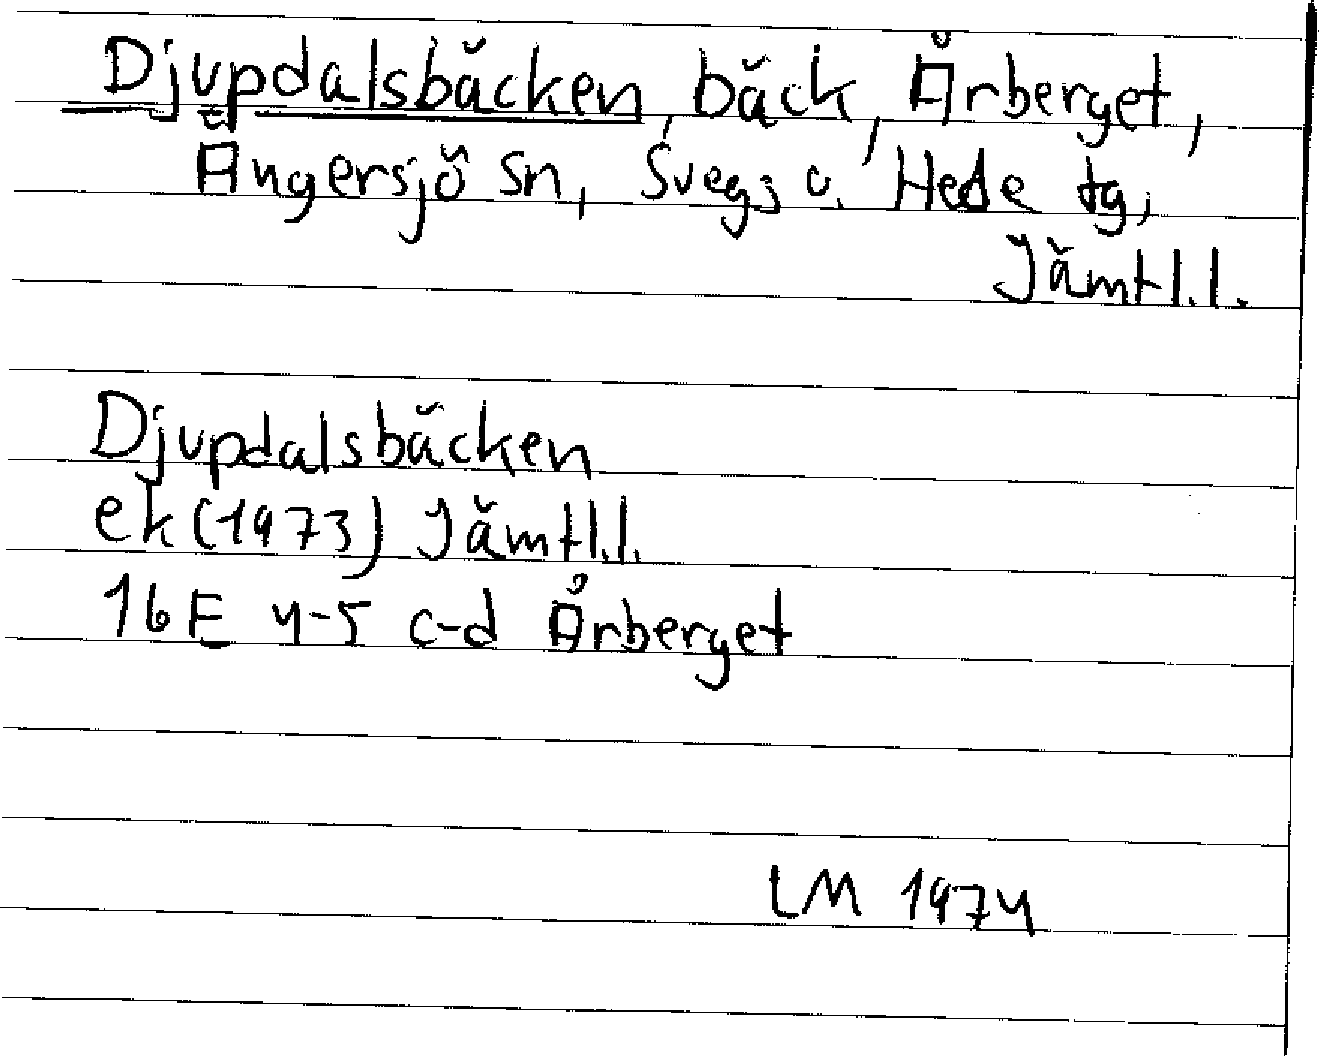 Djupdalsbäcken, bäck, Årberget,
Ängersjö sn, Svegs o. Hede tg,
Jämtl.l.
Djupdalsbäcken
ek (1973) Jämtl.l.
16E 4-5 c-d Årberget
LM 1974